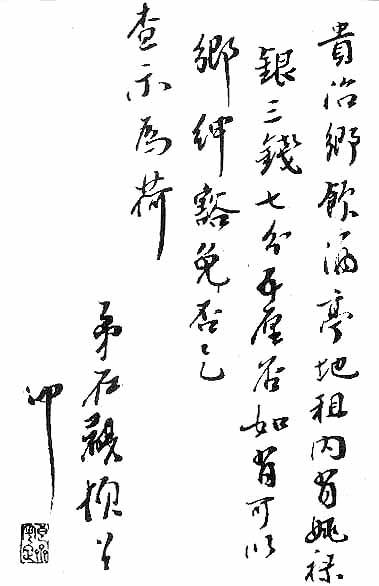 貴治鄉飲酒亭地租內有姚祿
銀三錢七分五厘否如有可以
鄉紳豁免否乞
查示為荷
弟石觀頓首
冲